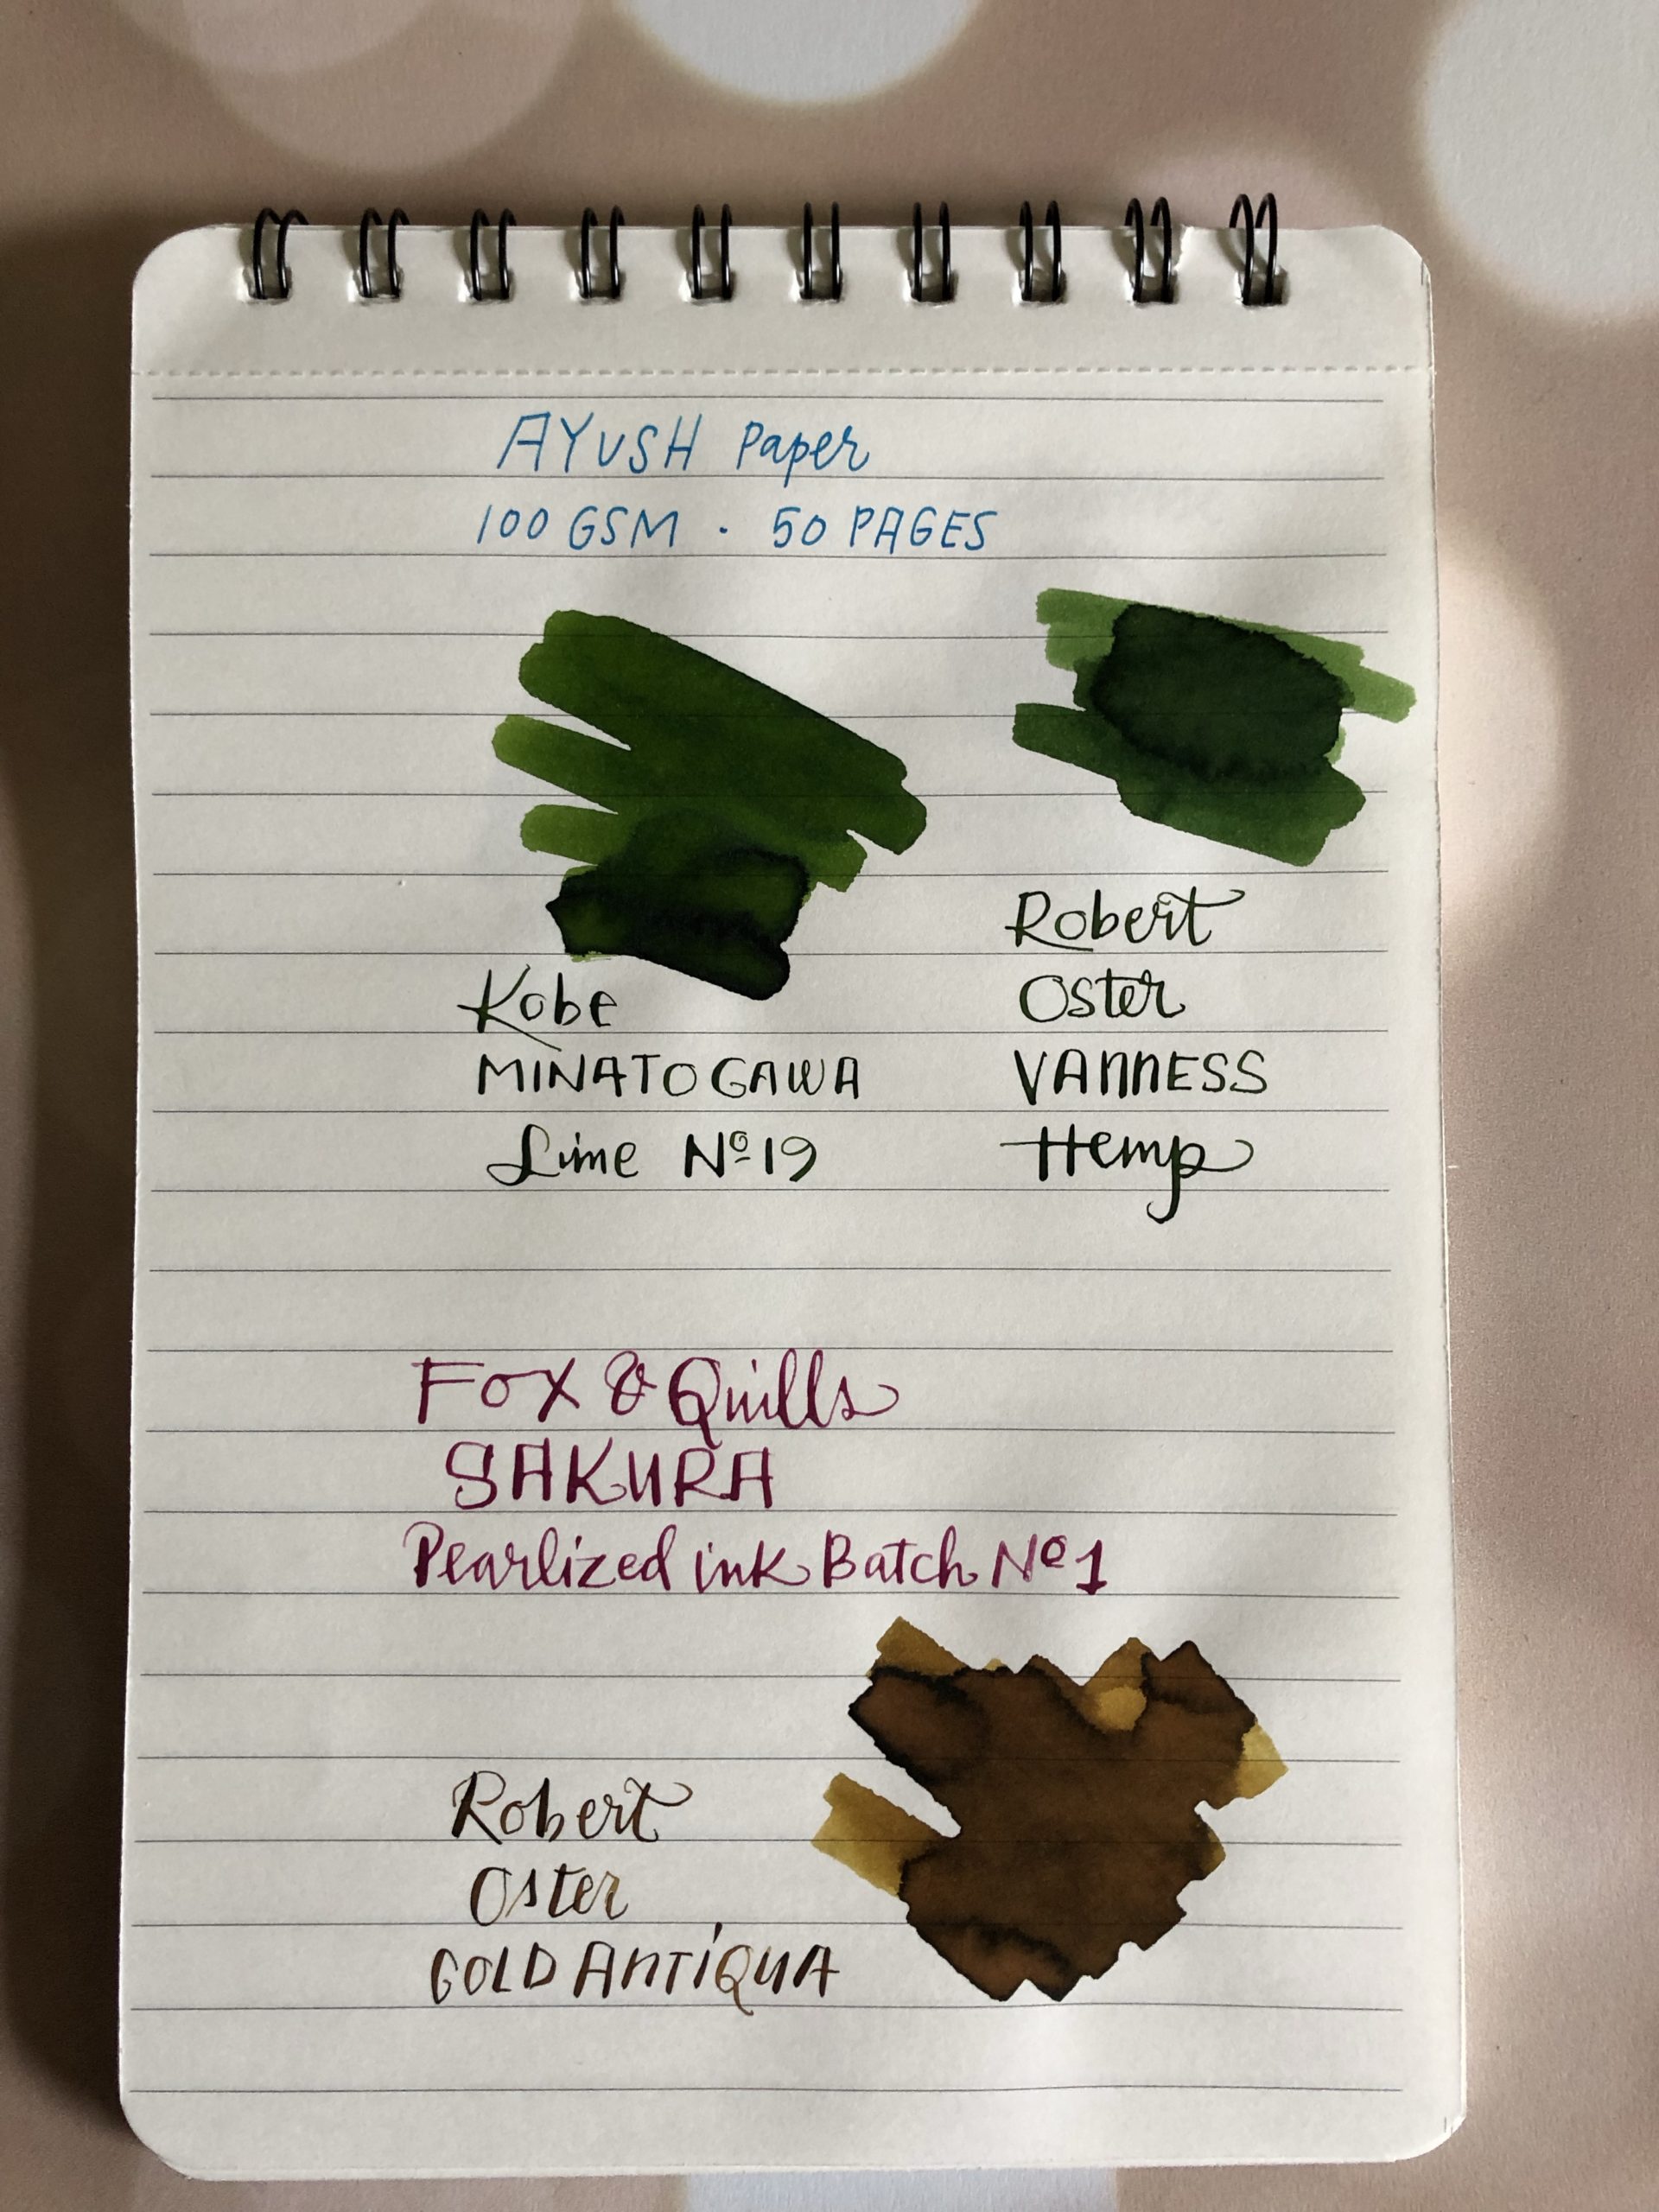 AYUSH Paper
100 GSM · 50 PAGES
Kobe
MINATOGAWA
Lime Nº19
Robert
Oster
VANNESS
Hemp
Fox & Quills
SAKURA
Pearlized ink Batch Nº1
Robert
Oster
GOLD ANTiQUA